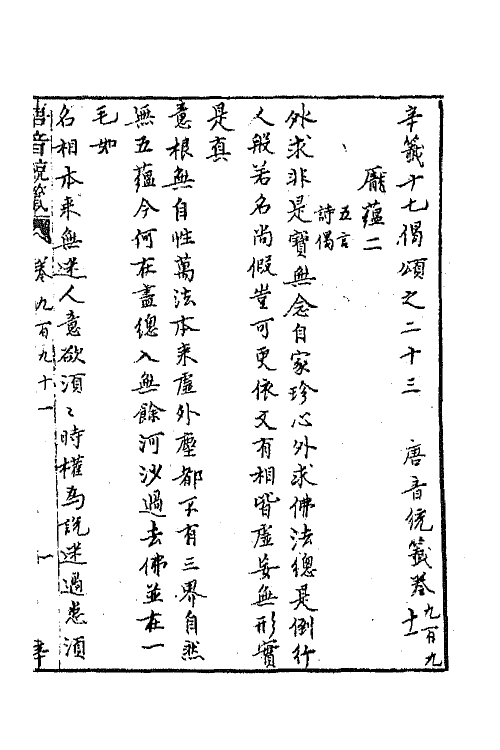 辛籤十七偈頌之二十三　唐音統籤卷九百九十一
龐蘊二
五言
詩偈
外求非是寶無念自家珍心外求佛法總是倒行
人般若名尚假豈可更依文有相皆虛妄無形實
是真
意根無自性萬法本来虛外塵都不有三界自然
無五蘊今何在盡總入無餘河沙過去佛並在一
毛如
名相本来無迷人意欲須〻時權爲說迷過患須
唐音統籤 卷九百九十一 一 辛